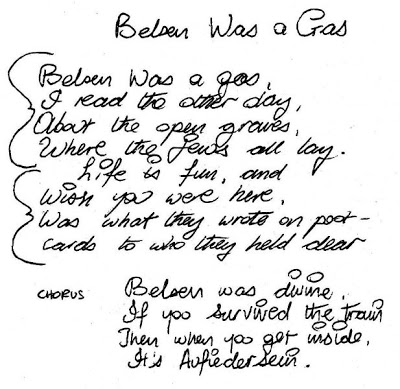 Belsen Was a Gas
Belsen Was a gas,
I read the other day,
About the open graves,
Where the jews all lay.
Life is fun, and
Wish you were here,
Was what they wrote on post-
cards to who they held dear
CHORUS Belsen was divine,
If you survived the train
Then when you get inside,
It's Aufiedersein.